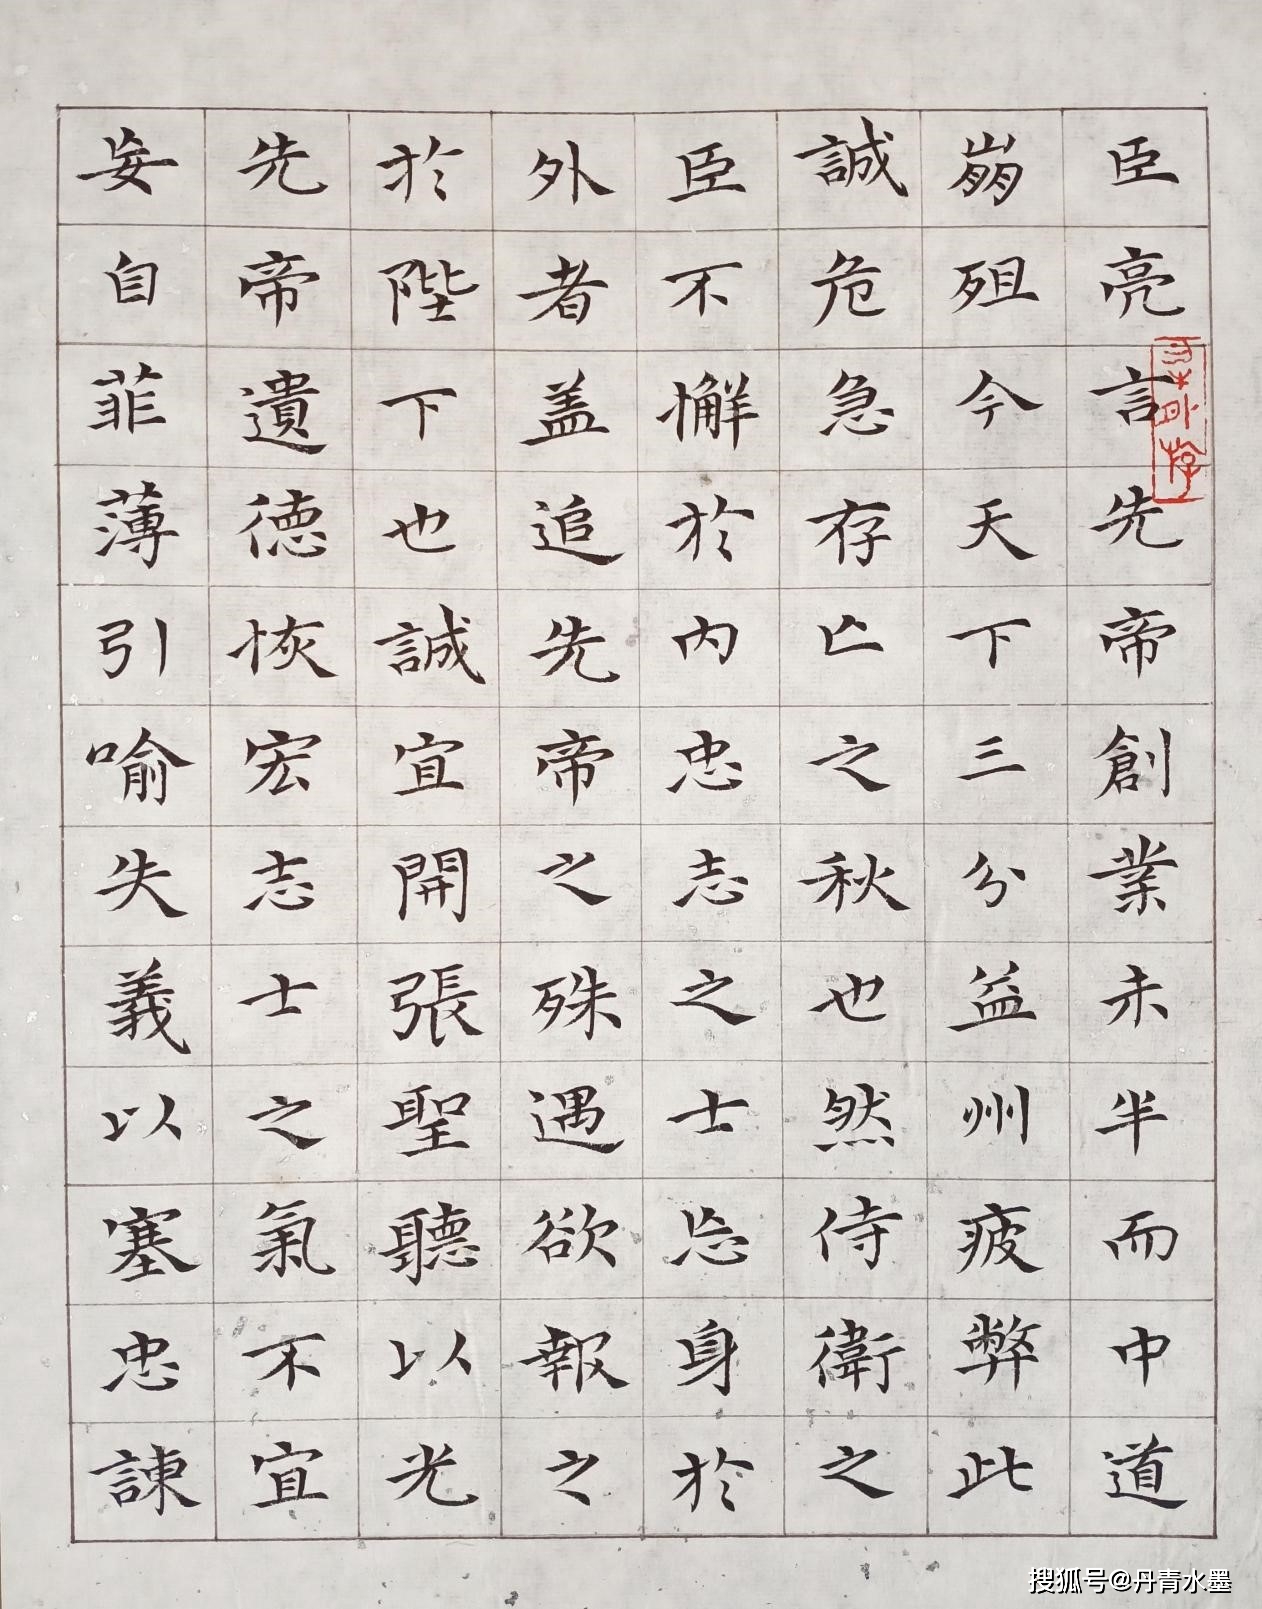 臣亮言先帝創業未半而中道
崩殂今天下三分益州疲弊此
誠危急存亡之秋也然侍衛之
臣不懈於內忠志之士忘身於
外者盖追先帝之殊遇欲報之
於陛下也誠宜開張聖聽以光
先帝遺德恢宏志士之氣不宜
妄自菲薄引喻失義以塞忠諫
搜狐号@丹青水墨